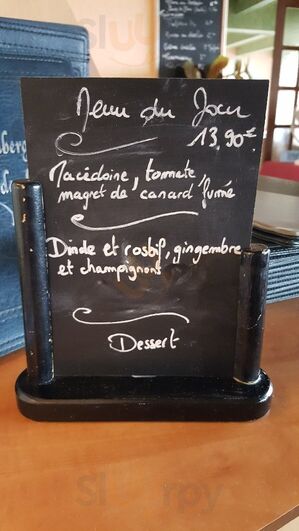 Menu du Jour
13,90€
Macédoine, tomate,
magret de canard fumé
Dinde et rosbif, gingembre
et champignons
Dessert